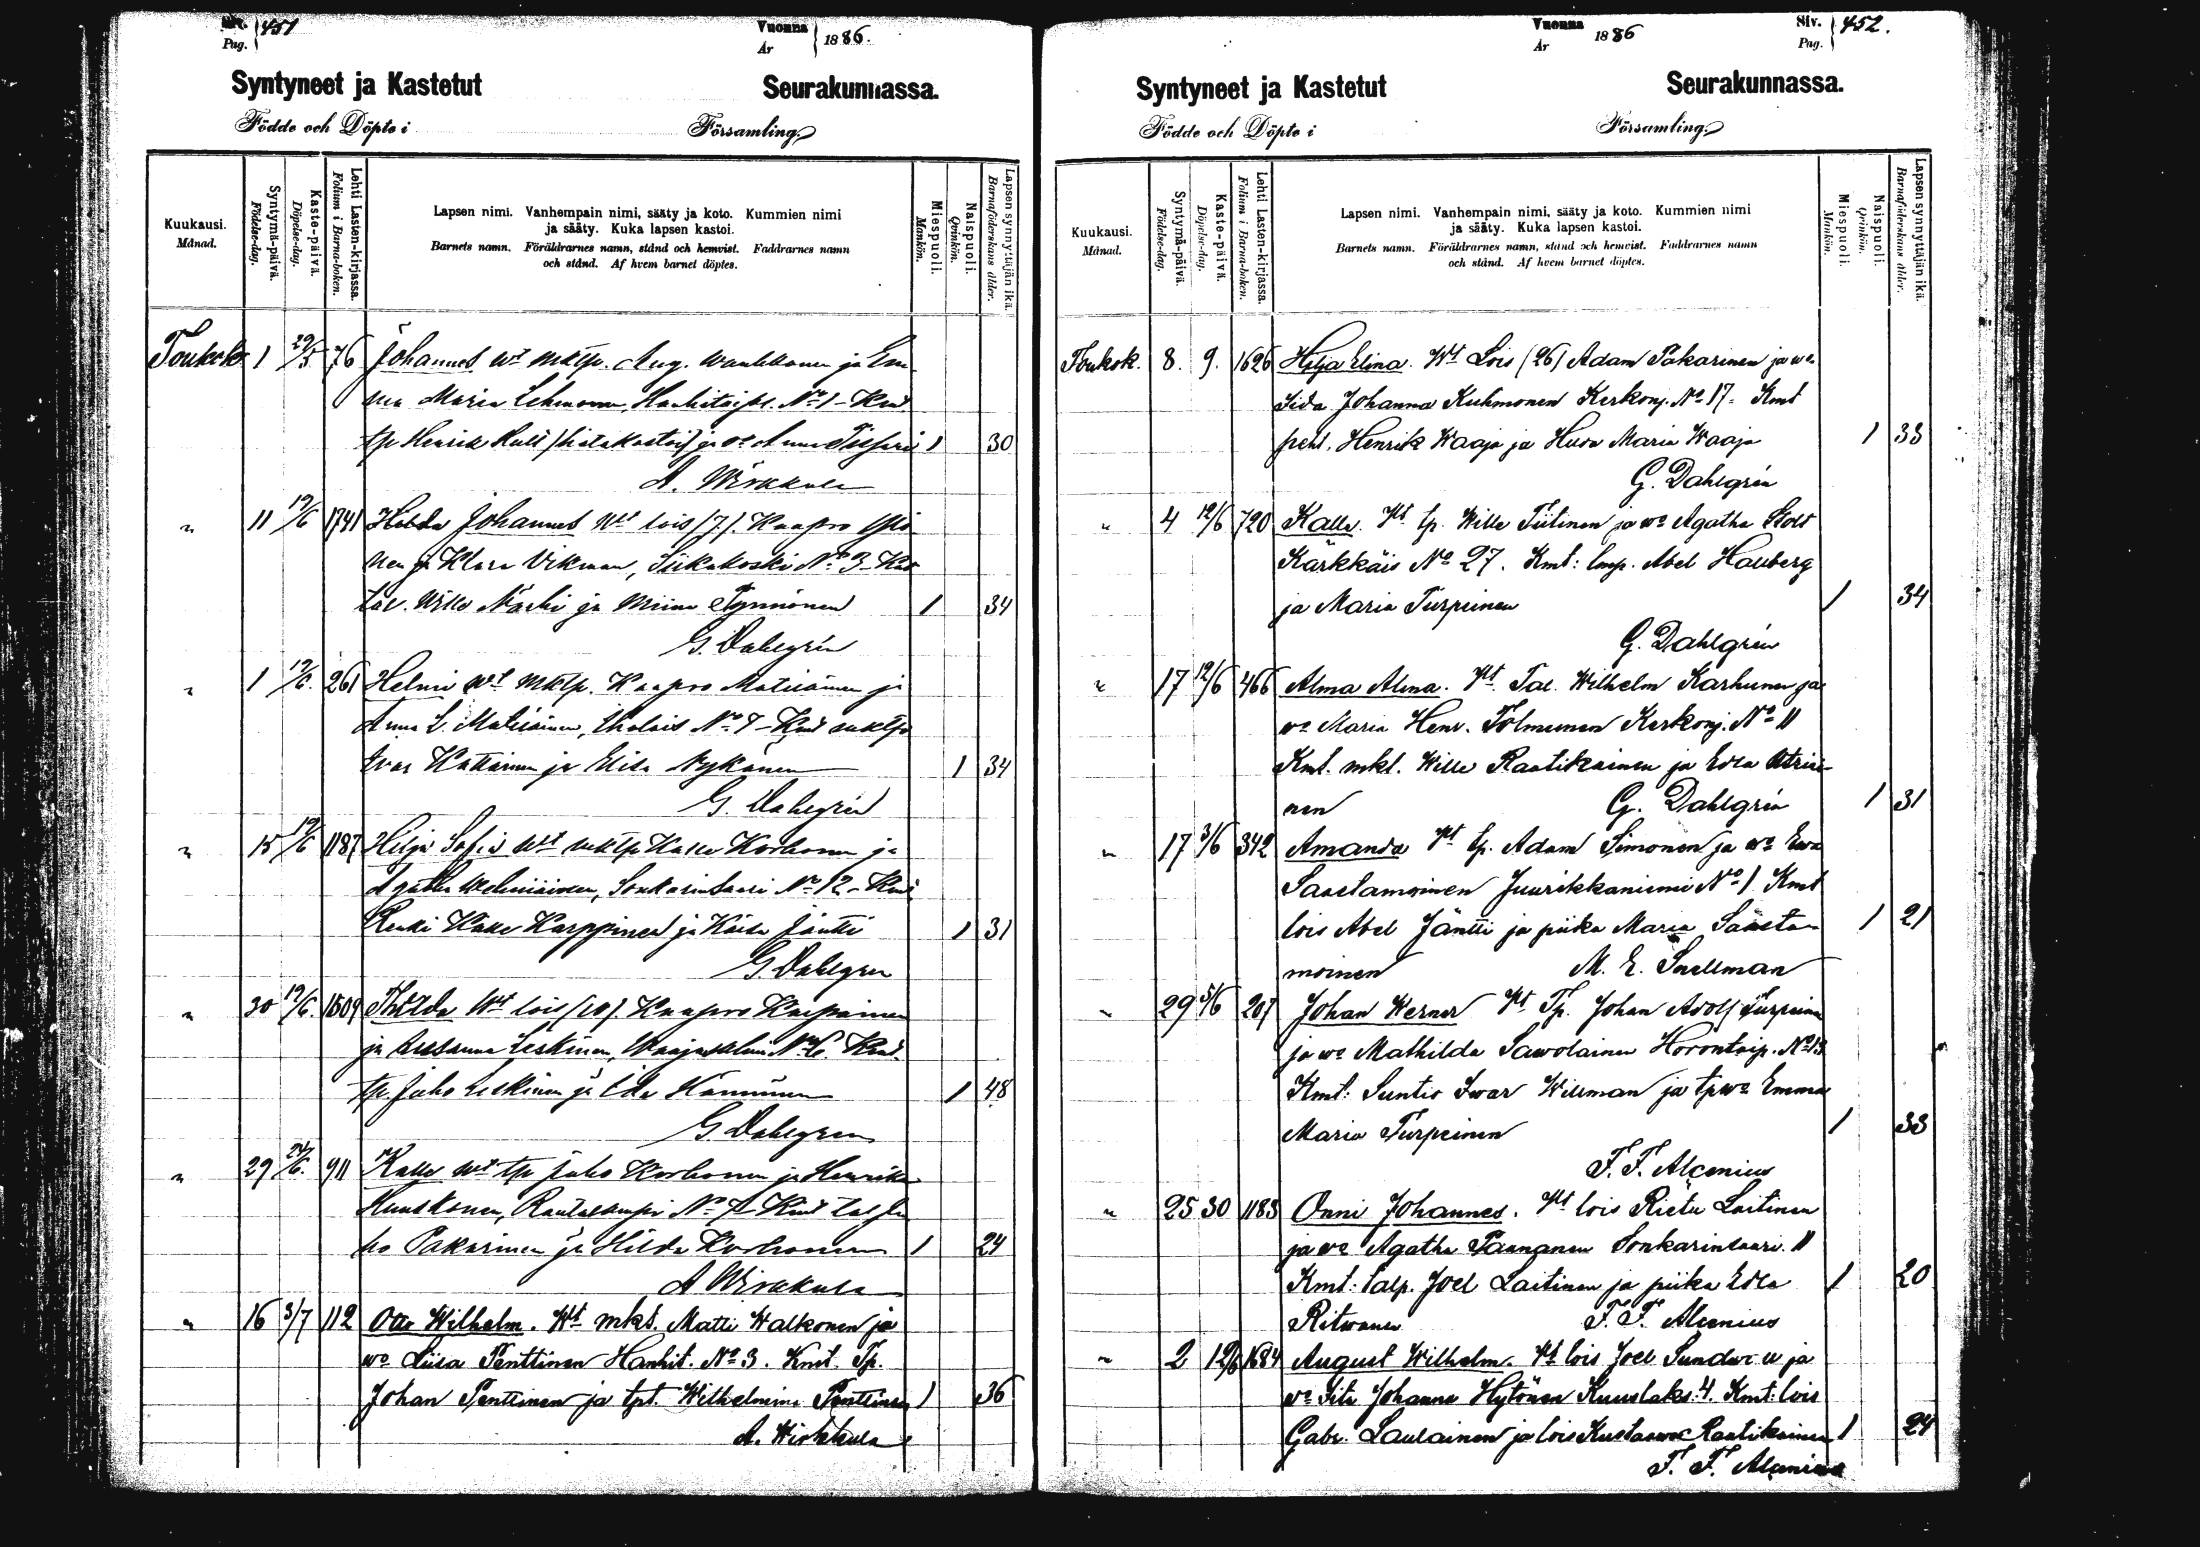 Siv. Pag. 451
Vuonna År 1886.
Syntyneet ja Kastetut Seurakunnassa.
Födde och Döpte i Församling
Kuukausi. Månad.
Syntymä-päivä. Födelse-dag.
Kaste-päivä. Döpelse-dag.
Lehti Lasten-kirjassa. Folium i Barna-boken.
Lapsen nimi. Vanhempain nimi, sääty ja koto. Kummien nimi
ja sääty. Kuka lapsen kastoi.
Barnets namn. Föräldrarnes namn, stånd och hemvist. Faddrarnes namn
och stånd. Af hvem barnet döptes.
Miespuoli. Mankön.
Naispuoli. Qvinkön.
Lapsen synnyttäjän ikä. Barnaföderskans ålder.
Toukok. 1 76 Johannes Wt mktp. Aug. ja Em-
ma Maria No 1 - Kmt
tp Henrik (hätäkastoi) ja Anna 1 30
A. Wirkkula
" 11 12/6 1741 Johannes Wt lois (7). Kaapro
nen ja Klara Vikman, Siikakoski No 3 - Kmt
tal. Wille ja Miina Tynnönen 1 34
G. Dahlgrén
" 1 12/6. 261 Helmi Wt mktp. Kaapro Matilainen ja
Anna L. Matilainen, No 7 - Kmt mktp
Ivar ja Elisa Nykänen 1 34
G. Dahlgrén
" 15 12/6 1187 Hilja Sofia Wt mktp Kalle Korhonen ja
Agatha Sonkarinsaari No 12 - Kmt
Renki Kalle Karppinen ja Kaisa Jäntti 1 31
G. Dahlgren
" 30 12/6. 1509 Wt lois (10). Kaapro
ja Susanna Leskinen, No 6. Kmt
tp. Juho Leskinen ja Ida 1 48
G. Dahlgren
" 29 911 Kalle Wt tp Juho Korhonen ja Henrika
Huuskonen, No 7 - Kmt tal Ju-
ho Pakarinen ja Hilda Korhonen 1 24
A Wirkkula
" 16 3/7 112 Otto Wilhelm. Wt mkt. Matti Walkonen ja
wo Liisa Penttinen Hankit. No 3. Kmt. Tp.
Johan Penttinen ja tpt. Wilhelmina Penttinen 1 36
A. Wirkkula
Vuonna År 1886
Siv. Pag. 452.
Syntyneet ja Kastetut Seurakunnassa.
Födde och Döpte i Församling
Kuukausi. Månad.
Syntymä-päivä. Födelse-dag.
Kaste-päivä. Döpelse-dag.
Lehti Lasten-kirjassa. Folium i Barna-boken.
Lapsen nimi. Vanhempain nimi, sääty ja koto. Kummien nimi
ja sääty. Kuka lapsen kastoi.
Barnets namn. Föräldrarnes namn, stånd och hemvist. Faddrarnes namn
och stånd. Af hvem barnet döptes.
Miespuoli. Mankön.
Naispuoli. Qvinkön.
Lapsen synnyttäjän ikä. Barnaföderskans ålder.
Toukok. 8. 9. 1626 Hilja Elina. Wt Lois (26) Adam Pakarinen ja wo
Iida Johanna Kuhmonen Kerkonj. No 17. Kmt
Henrik Waaja ja Maria Waaja 1 33
G. Dahlgrén
" 4 12/6 720 Kalle. Wt tp. Wille Tiitinen ja wo Agatha Stolt
Kärkkäis No 27. Kmt: lmp. Abel Hauberg
ja Maria Turpeinen 1 34
G. Dahlgrén
" 17 12/6 466 Alma Alina. Wt. Tal. Wilhelm Karhunen ja
wo Maria Henr. Tolmunen Kerkonj. No 11
Kmt. mkt. Wille Raatikainen ja Edla
nen G. Dahlgrén 1 31
" 17 3/6 342 Amanda Wt tp. Adam Simonen ja wo Ewa
Saastamoinen Juurikkaniemi No 1 Kmt
lois Abel Jäntti ja piika Maria Saasta- 1 21
moinen M. E. Snellman
" 29 5/6 207 Johan Werner Wt Tp. Johan Adolf Turpeinen
ja wo Mathilda Sawolainen Horontaip. No 13
Kmt: Suntio Iwar Willman ja tpwo Emma
Maria Turpeinen 1 33
F. F. Alcenius
" 25 30 1183 Onni Johannes. Wt lois Rietu Laitinen
ja wo Agatha Paananen Sonkarinsaari. 11
Kmt: talp. Joel Laitinen ja piika Edla 1 20
Ritwanen F. F. Alcenius
" 2 12/6 1684 August Wilhelm. Wt lois Joel ja
wo Iita Johanna Hytönen Kuuslaks: 4. Kmt: lois
Gabr. Laulainen ja lois Kustaawa Raatikainen 1 24
F. F. Alcenius